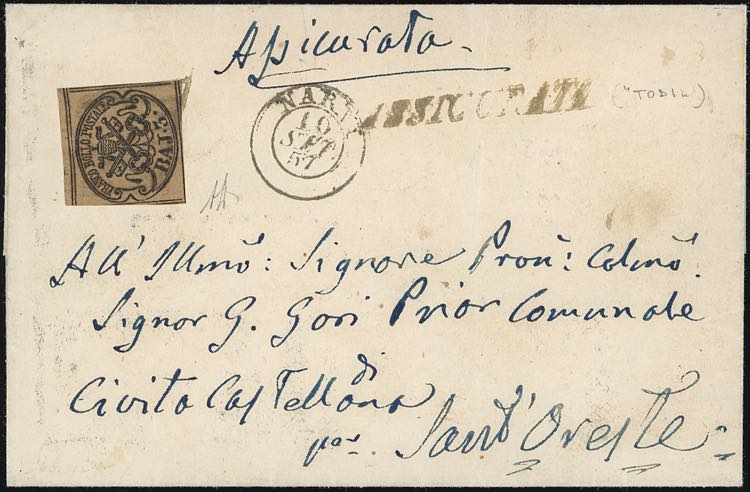 Assicurata -
FRANCO BOLLO POSTALE
BAJ. 3
NARNI
10
SET
57
ASSICURATA
("TODI")
All' Illmõ: Signore Proñ: Colmõ.
Signor G. Gori Prior Comunale
di
Civita Castellana
per Sant' Oreste =